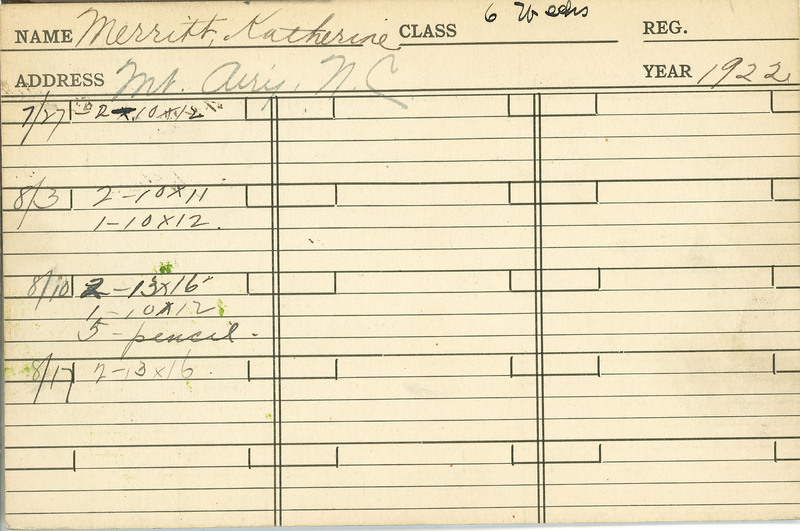 NAME Merritt, Katherine CLASS 6 Weeks REG.
ADDRESS Mt. Airy, N.C YEAR 1922
7/27 2-10x12
8/3 2-10x11
1-10x12.
8/10 2-13x16
1-10x12
5-pencil.
8/17 2-13x16.